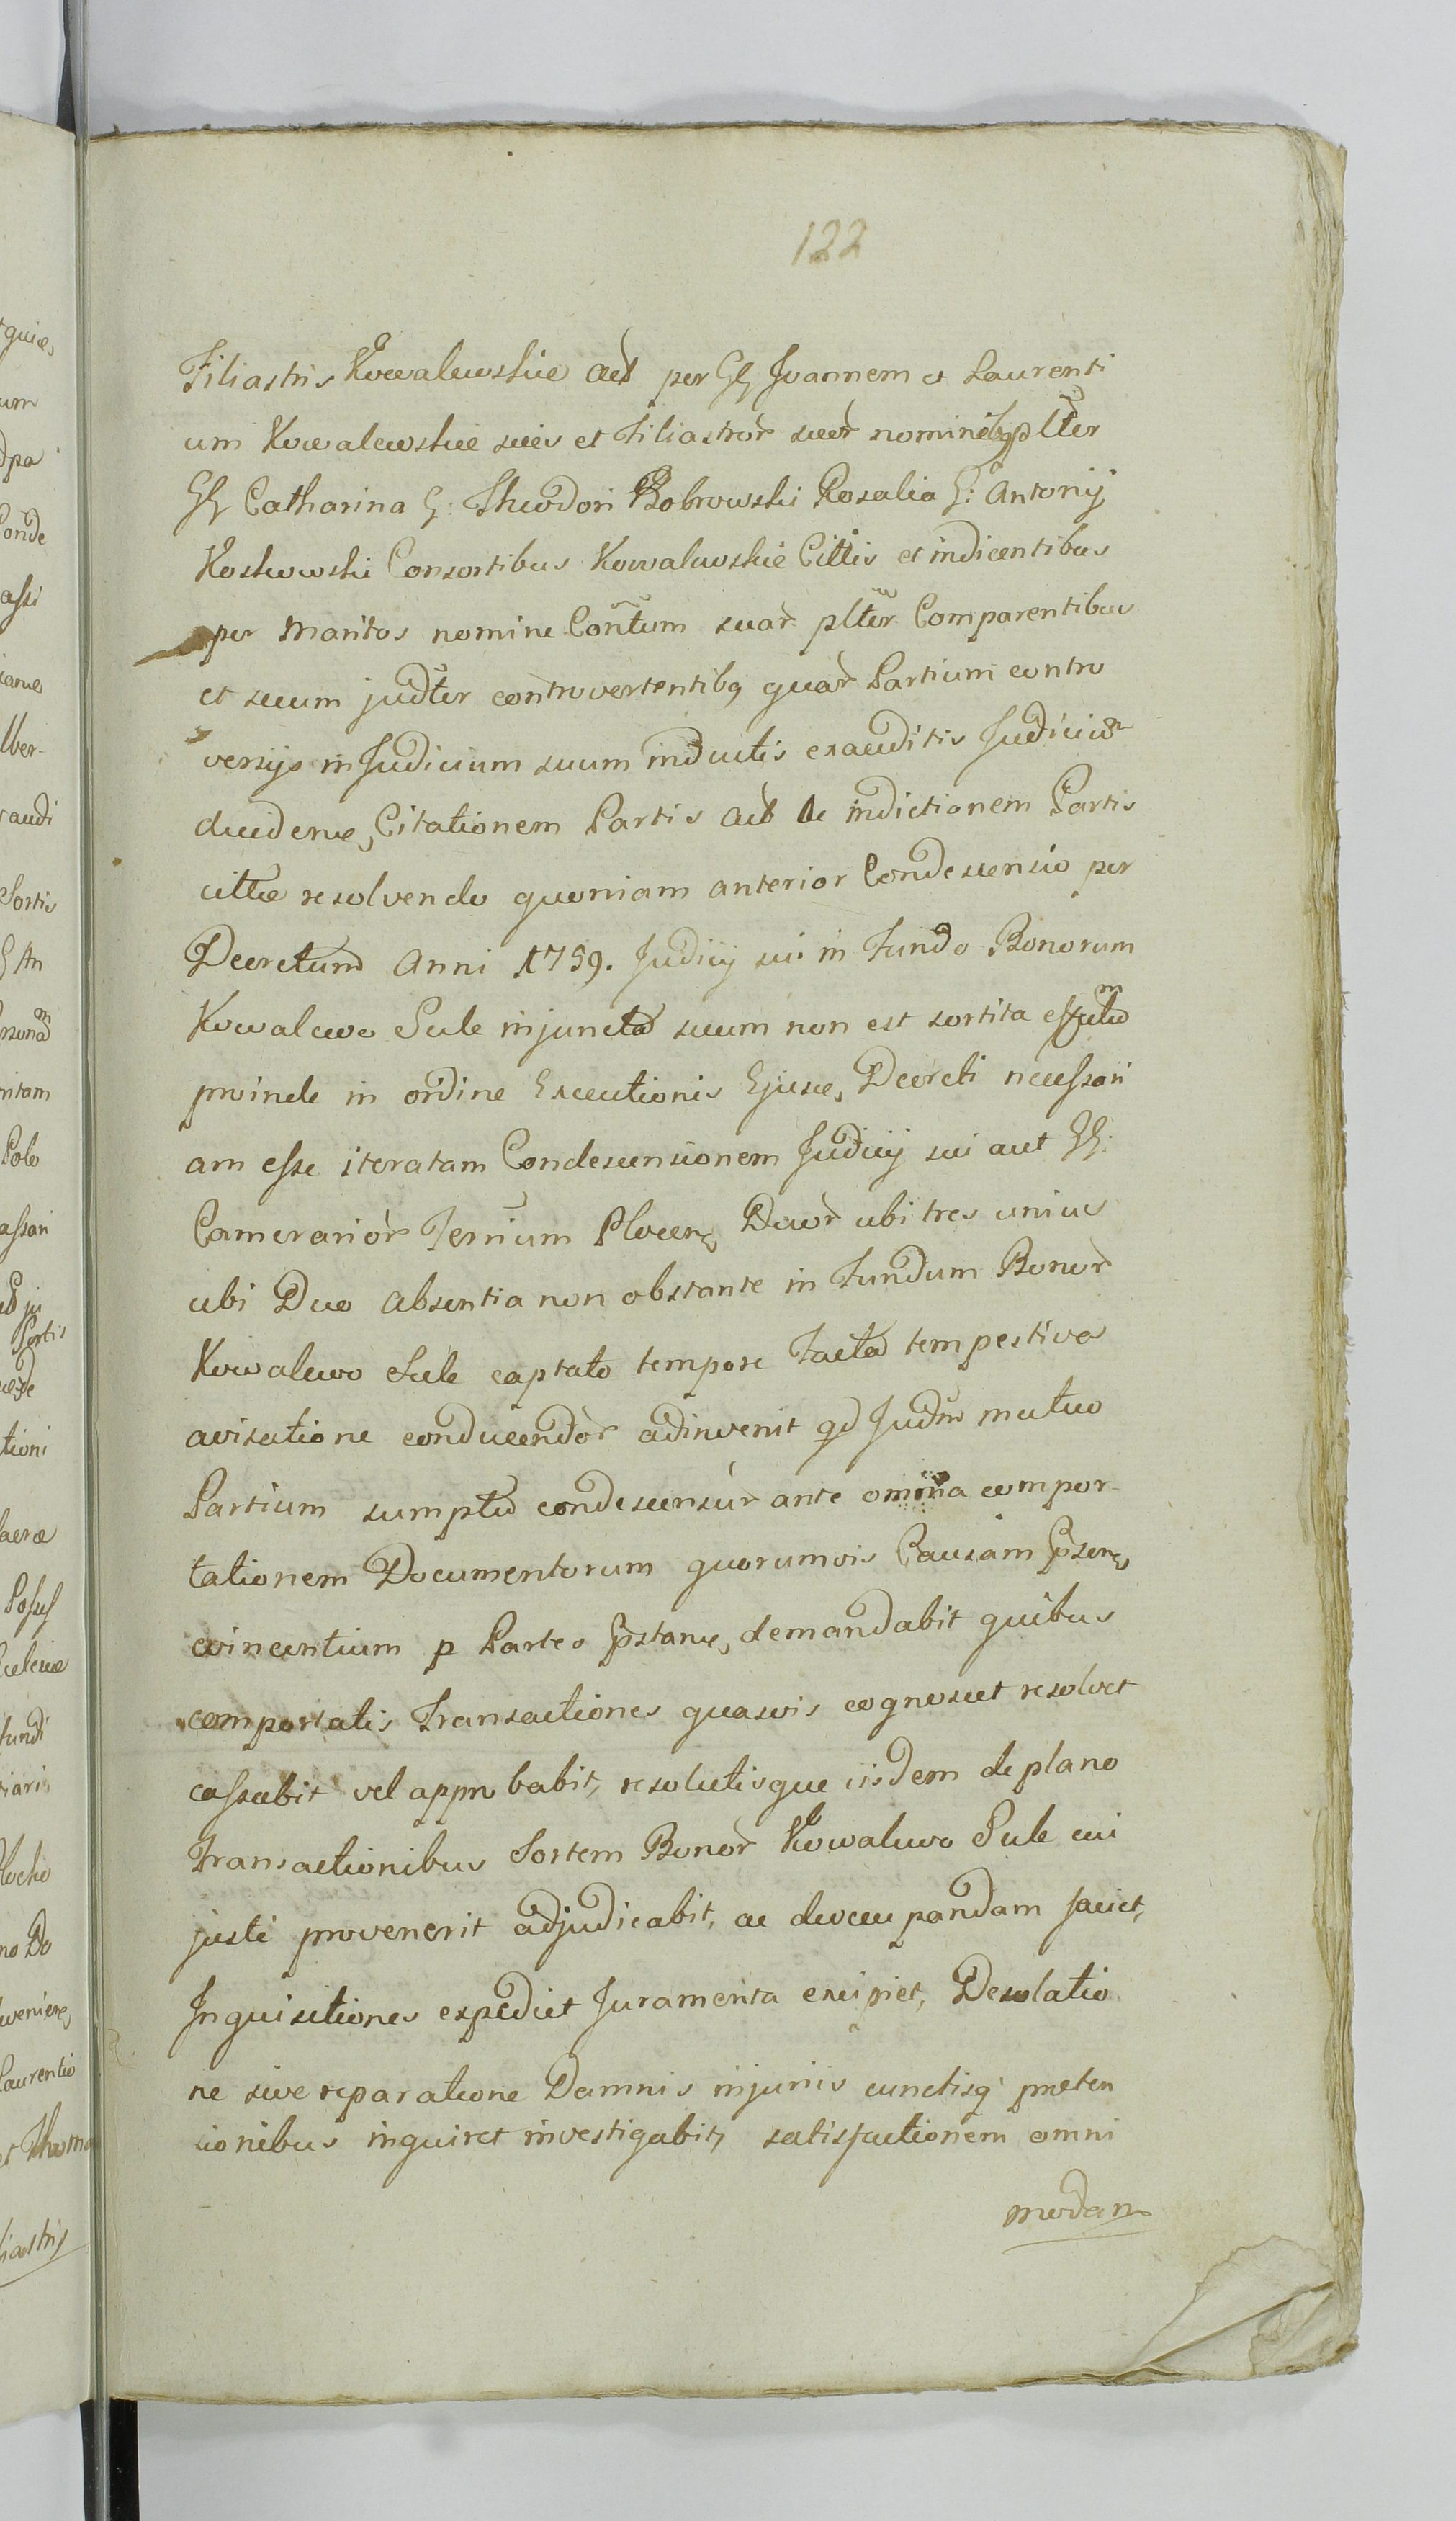 122
Filiastris Kowalewskie Act per GG Joannem et Laurenti
um Kowalewskie suis et Filiastror suor nominibq plter
GG Catharina G: Theodori Bobrowski Rosalia G: Antonij
Koskowski Consortibus Kowalewskie Cittis et indicentibus
per Maritos nomine Contum suar plter Comparentibus
et secum judter controvertentibq quar Partium contro
versijs in Judicium suum inductis exauditis Judicium
decidens, Citationem Partis Act de indictionem Partis
cittae resolvendo quoniam anterior Condescensio per
Decretum Anni 1759. Judicij sui in Fundo Bonorum
Kowalewo Sule injuncta suum non est sortita effectum
proinde in ordine Executionis Ejusce, Decreti necessari
am esse iteratam Condescensionem Judicij sui aut GG:
Camerarior Terrium Plocens, Duor ubi tres unius
ubi Duo absentia non obstante in Fundum Bonor
Kowalewo Sule captato tempore Facta tempestiva
avisatione conducendor adinvenit qd Judm mutuo
Partium sumptu condescensur ante omnia compor-
tationem Documentorum quorumvis Causam Pssens,
evincentium p Partes Pstane, demandabit quibus
comportatis Transactiones quasvis cognoscet resolvet
cassabit vel approbabit, resolutisque iisdem de plano
Transactionibus Sortem Bonor Kowalewo Sule cui
justi provenerit adjudicabit, ac deoccupandam faciet,
Inquisitiones expediet Juramenta excipiet, Desolatio
ne sive reparatione Damnis injuriis cunctisq preten
cionibus inquiret investigabit, satisfactionem omni
modam